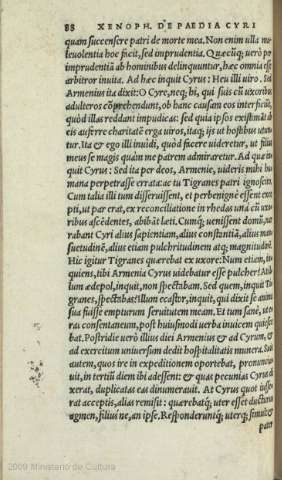 88 XENOPH. DE PAEDIA CYRI
quam succensere patri de morte mea. Non enim ulla ma-
leuolentia hoc facit, sed imprudentia. Quæcūq; uerò per
imprudentiā ab hominibus delinquuntur, hæc omnia esse
arbitror inuita. Ad hæc inquit Cyrus: Heu illi uiro. Sed
Armenius ita dixit: O Cyre, neq; hi, qui suis cū uxoribus
adulteros cōprehendunt, ob hanc causam eos interficiūt,
quòd illas reddant impudicas: sed quia ipsos existimāt ab
eis auferre charitatē erga uiros, itaq; ijs ut hostibus utun-
tur. Ita & ego illi inuidi, quòd facere uideretur, ut filius
meus se magis quàm me patrem admiraretur. Ad quæ in-
quit Cyrus: Sed ita per deos, Armenie, uideris mihi hu-
mana perpetrasse errata: ac tu Tigranes patri ignoscito.
Cum talia illi tum disseruissent, et perbenignè essent exce
pti, ut par erat, ex reconciliatione in rhedas unā cū uxo-
ribus ascēdentes, abibāt læti. Cumq; uenissent domū, nar
rabant Cyri alius sapientiam, alius constantiā, alius man-
suetudinē, alius etiam pulchritudinem atq; magnitudinē.
Hic igitur Tigranes quærebat ex uxore: Num etiam, in-
quiens, tibi Armenia Cyrus uidebatur esse pulcher? At il-
lum ædepol, inquit, non spectabam. Sed quem, inquit Ti-
granes, spectabas? illum ecastor, inquit, qui dixit se anima
sua fuisse empturum seruitutem meam. Et tum sanè, ut e-
rat consentaneum, post huiusmodi uerba inuicem quiesce-
bat. Postridie uerò illius diei Armenius & ad Cyrum, &
ad exercitum uniuersum dedit hospitalitatis munera. Suis
autem, quos ire in expeditionem oportebat, pronuncia-
uit, in tertiū diem ibi adessent: & quas pecunias Cyrus di-
xerat, duplicatas eas dinumerauit. At Cyrus quot iusse-
rat acceptis, alias remisit: quærebatq; uter esset ducturus
agmen, filius ne, an ipse. Responderuntq; uterq; simul: &
pater
2009 Ministerio de Cultura